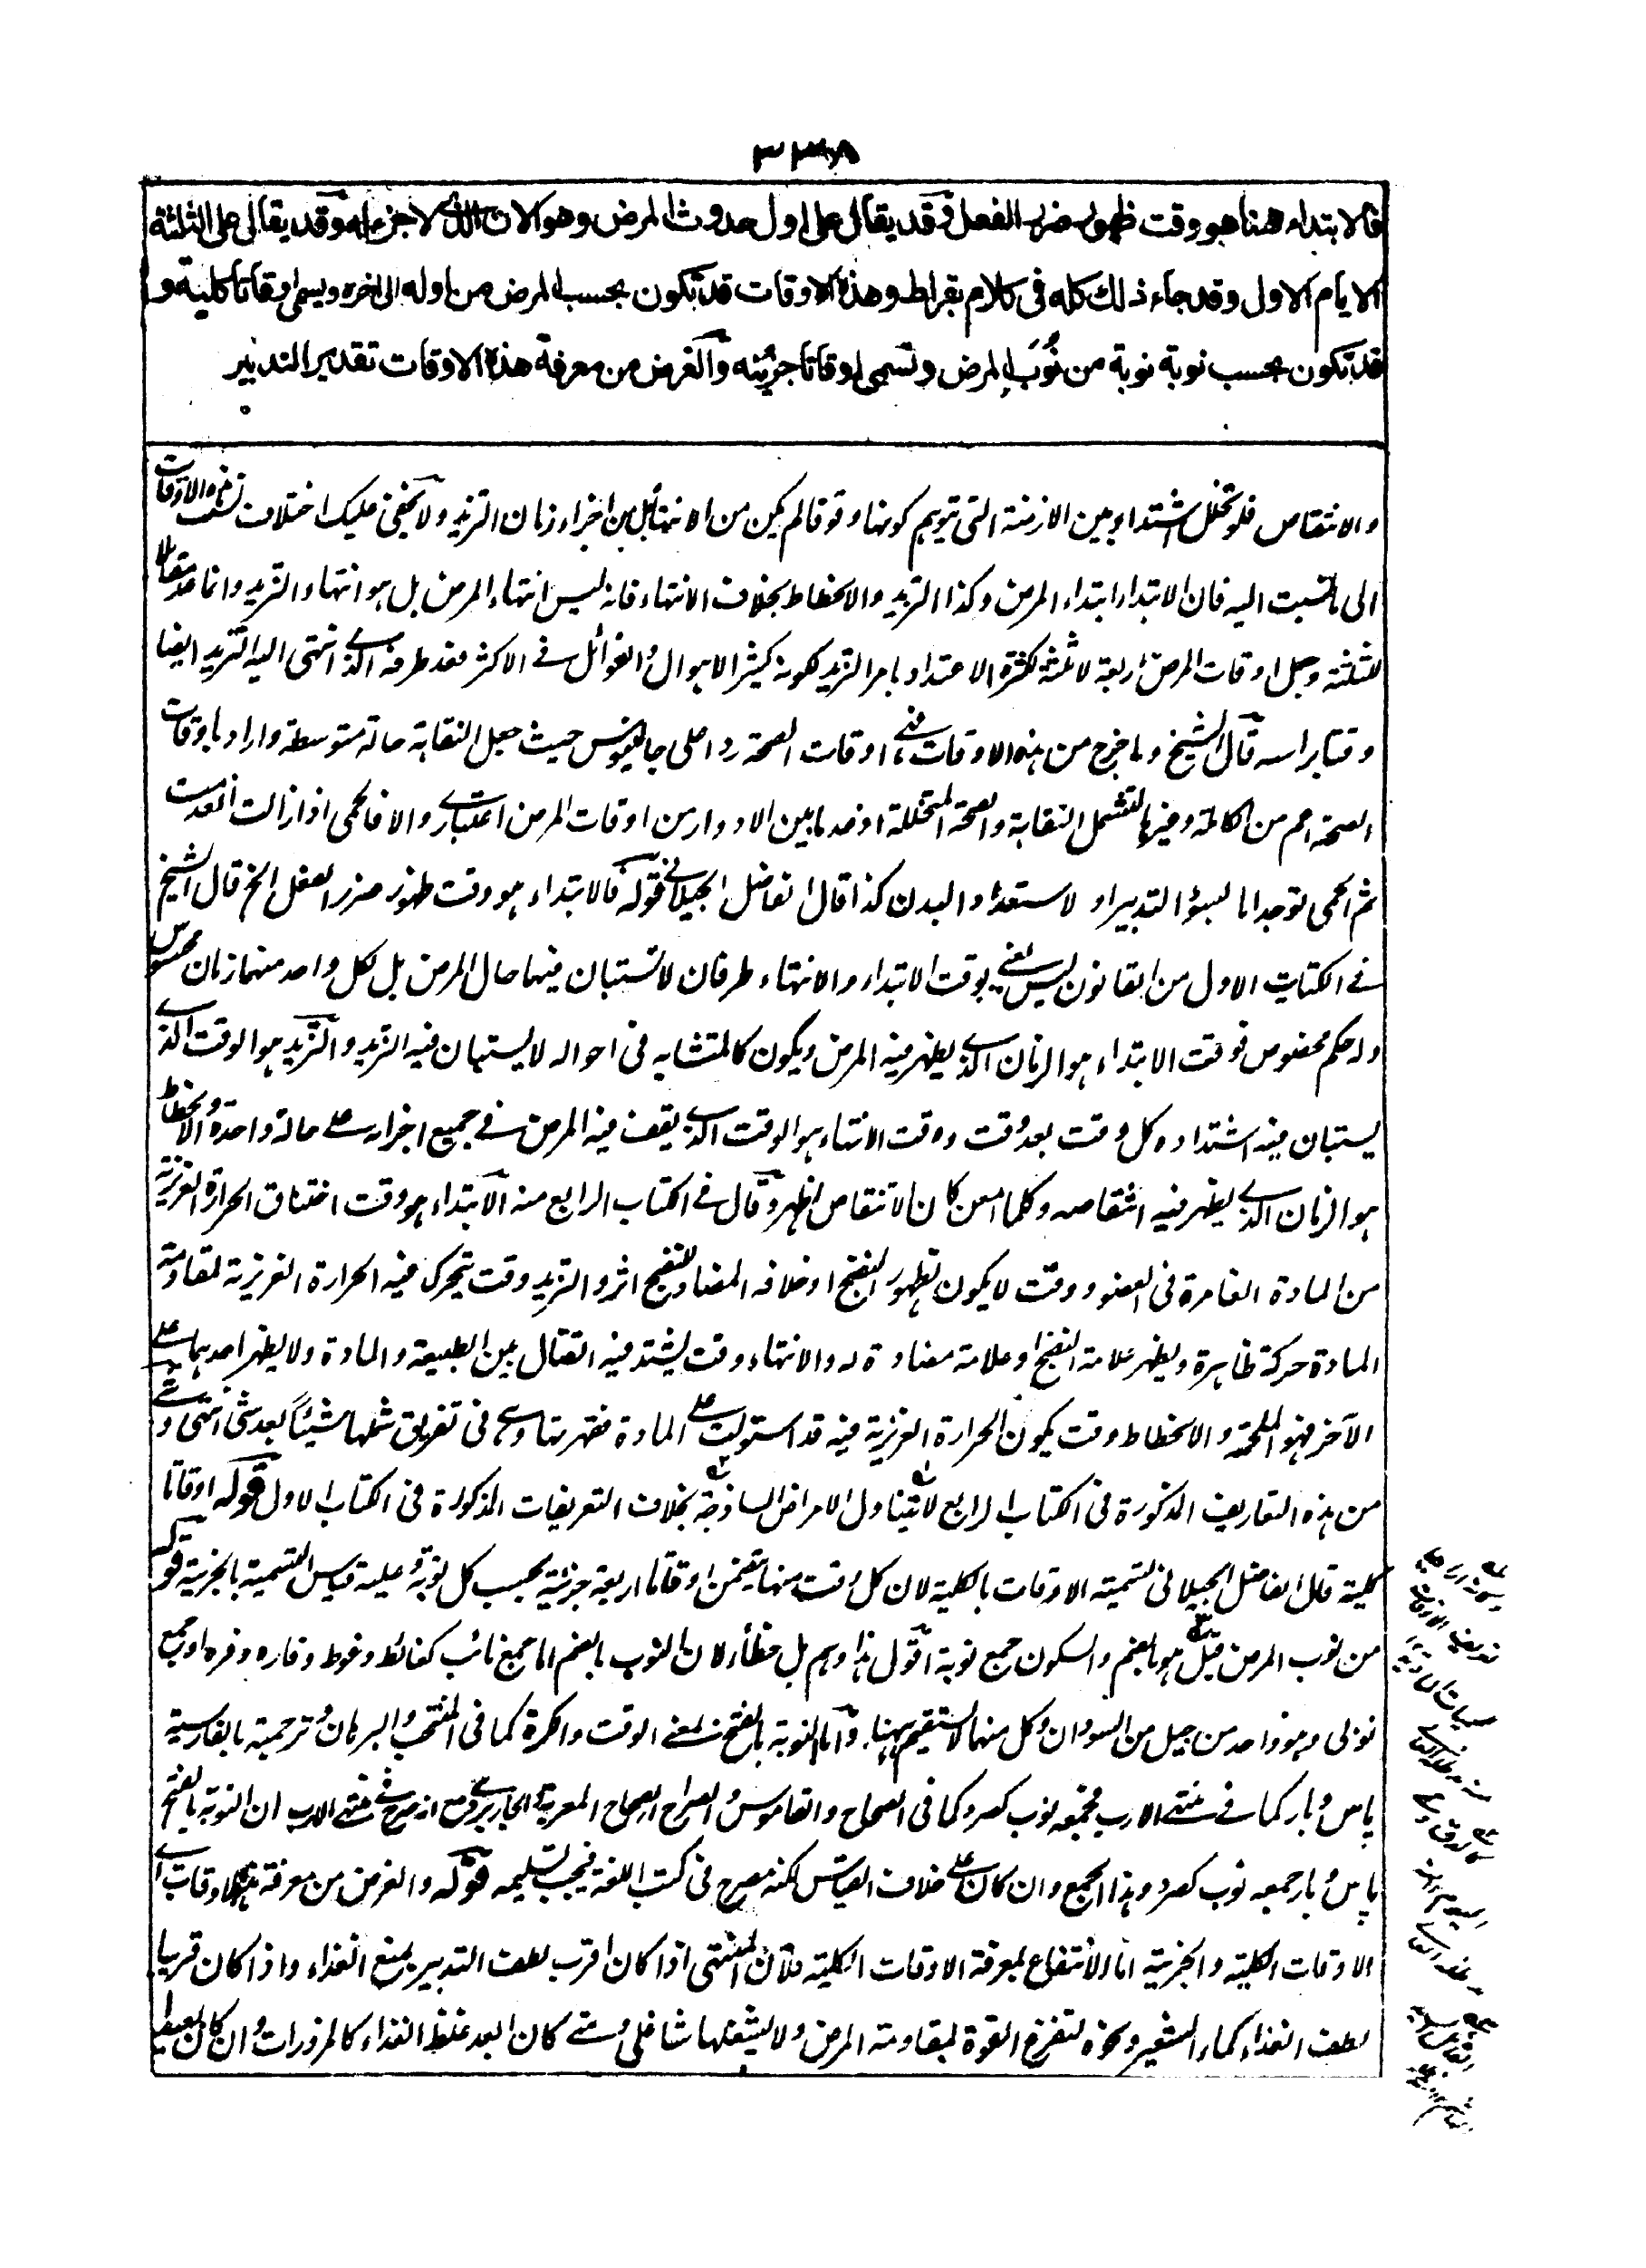 ٣٣٨
فالابتداء ههنا هو وقت ظهور ضرر الفعل وقد يقال على اول حدوث المرض وهو الان الذى لا جزء له وقد يقال على الثلثة
الايام الاول وقد جاء ذلك كله فى كلام بقراط وهذه الاوقات قد تكون بحسب المرض من اوله الى اخره ويسمى اوقاتا كلية و
قد تكون بحسب نوبة نوبة من نُوَب المرض وتسمى اوقاتا جزئية والغرض من معرفة هذه الاوقات تقدير التدبير
والانتقاص فلو تخلل اشتداد بين الازمنة التى يتوهم كونها وقوفا لم يكن من الانتهاء بل من اجزاء زمان التزيد ولا يخفى عليك اختلاف هذه الاوقات
الى ما نسبت اليه فان الابتداء ابتداء المرض وكذا التزيد والانحطاط بخلاف الانتهاء فانه ليس انتهاء المرض بل هو انتهاء التزيد وانما عد مقابلا
للثلثة وجعل اوقات المرض اربعة لا ثلثة لكثرة الاعتداد بامر التزيد لكونه كثير الاهوال والغوائل فى الاكثر فعد طرفه الذى انتهى اليه التزيد ايضا
وقتا براسه قال الشيخ وما خرج من هذه الاوقات فهى اوقات الصحة ردا على جالينوس حيث جعل النقاهة حالة متوسطة واراد باوقات
الصحة اعم من الكاملة وغيرها لتشمل النقاهة والصحة المتخللة اذ عد ما بين الادوار من اوقات المرض اعتبارى والا فالحمى اذا زالت انعدمت
ثم الحمى توجد اما لسوء التدبير او لاستعداد البدن كذا قال الفاضل الجيلانى قوله فالابتداء هو وقت ظهور ضرر الفعل الخ قال الشيخ
فى الكتاب الاول من القانون ليس نعنى بوقت الابتداء والانتهاء طرفان لا تستبان فيهما حال المرض بل لكل واحد منهما زمان محسوس
وله حكم مخصوص فوقت الابتداء هو الزمان الذى يظهر فيه المرض ويكون كالمتشابه فى احواله لا يستبان فيه التزيد والتزيد هو الوقت الذى
يستبان فيه اشتداده كل وقت بعد وقت ووقت الانتهاء هو الوقت الذى يقف فيه المرض فى جميع اجزائه على حالة واحدة والانحطاط
هو الزمان الذى يظهر فيه انتقاصه وكلما امعن كان الانتقاص اظهر وقال فى الكتاب الرابع منه الابتداء هو وقت اختناق الحرارة الغريزية
من المادة الغامرة فى العضو ووقت لا يكون لظهور النضج او خلافه المضاد للنضج اثر والتزيد وقت يتحرك فيه الحرارة الغريزية لمقاومة
المادة حركة ظاهرة ويظهر علامة النضج او علامة مضادة له والانتهاء وقت يشتد فيه القتال بين الطبيعة والمادة ولا يظهر احدهما على
الآخر فهو الملحمة والانحطاط وقت يكون الحرارة الغريزية فيه قد استولت على المادة فقهرتها وهى فى تفريق شملها شيئا بعد شئ انتهى وشئ
من هذه التعاريف المذكورة فى الكتاب الرابع لا يتناول الامراض الساذجة بخلاف التعريفات المذكورة فى الكتاب الاول قوله اوقاتا
كلية قال الفاضل الجيلانى تسمية الاوقات بالكلية لان كل وقت منها يتضمن اوقاتا اربعة جزئية بحسب كل نوبة وعليه قياس التسمية بالجزئية قوله
من نوب المرض قيل هو بالضم والسكون جمع نوبة اقول هذا وهم بل خطأ لان النوب بالضم اما جمع نائب كغائط وغوط وفاره وفره او جمع
نوبى وهو واحد من جيل من السودان وكل منهما لا يستقيم ههنا واما النوبة بالفتح بمعنى الوقت والكرة كما فى المنتخب والبرهان وترجمته بالفارسية
پاس وبار كما فى منتهى الارب فجمعه نوب كصرد كما فى الصحاح والقاموس والصراح صرح فى منتهى الارب ان النوبة بالفتح
پاس وبار جمعه نوب كصرد وهذا الجمع وان كان على خلاف القياس لكنه مصرح فى كتب اللغة فيجب تسليمه قوله والغرض من معرفة هذه الاوقات اى
الاوقات الكلية والجزئية اما الانتفاع بمعرفة الاوقات الكلية فلان المنتهى اذا كان اقرب لطف التدبير بمنع الغذاء واذا كان قريبا
لطف الغذاء كماء الشعير ونحوه لتفرغ القوة لمقاومة المرض ولا يشغلها شاغل ومتى كان ابعد غلظ الغذاء كالمزورات وان كان بعيدا